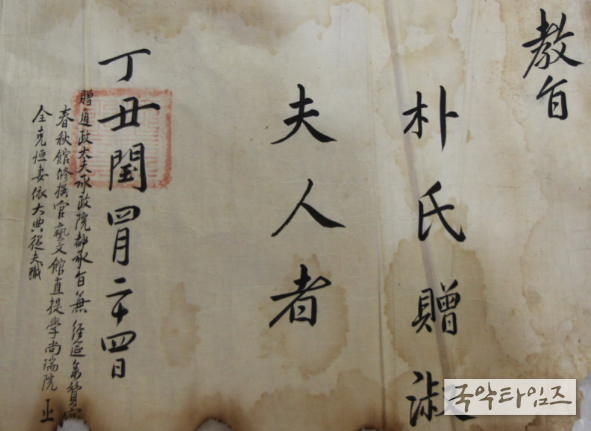 教旨
朴氏贈淑
夫人者
丁丑閏四月二十四日
贈通政大夫承政院都承旨兼 經筵參贊官
春秋館修撰官藝文館直提學尚瑞院正
全克恒妻依大典從夫職
국악타임즈